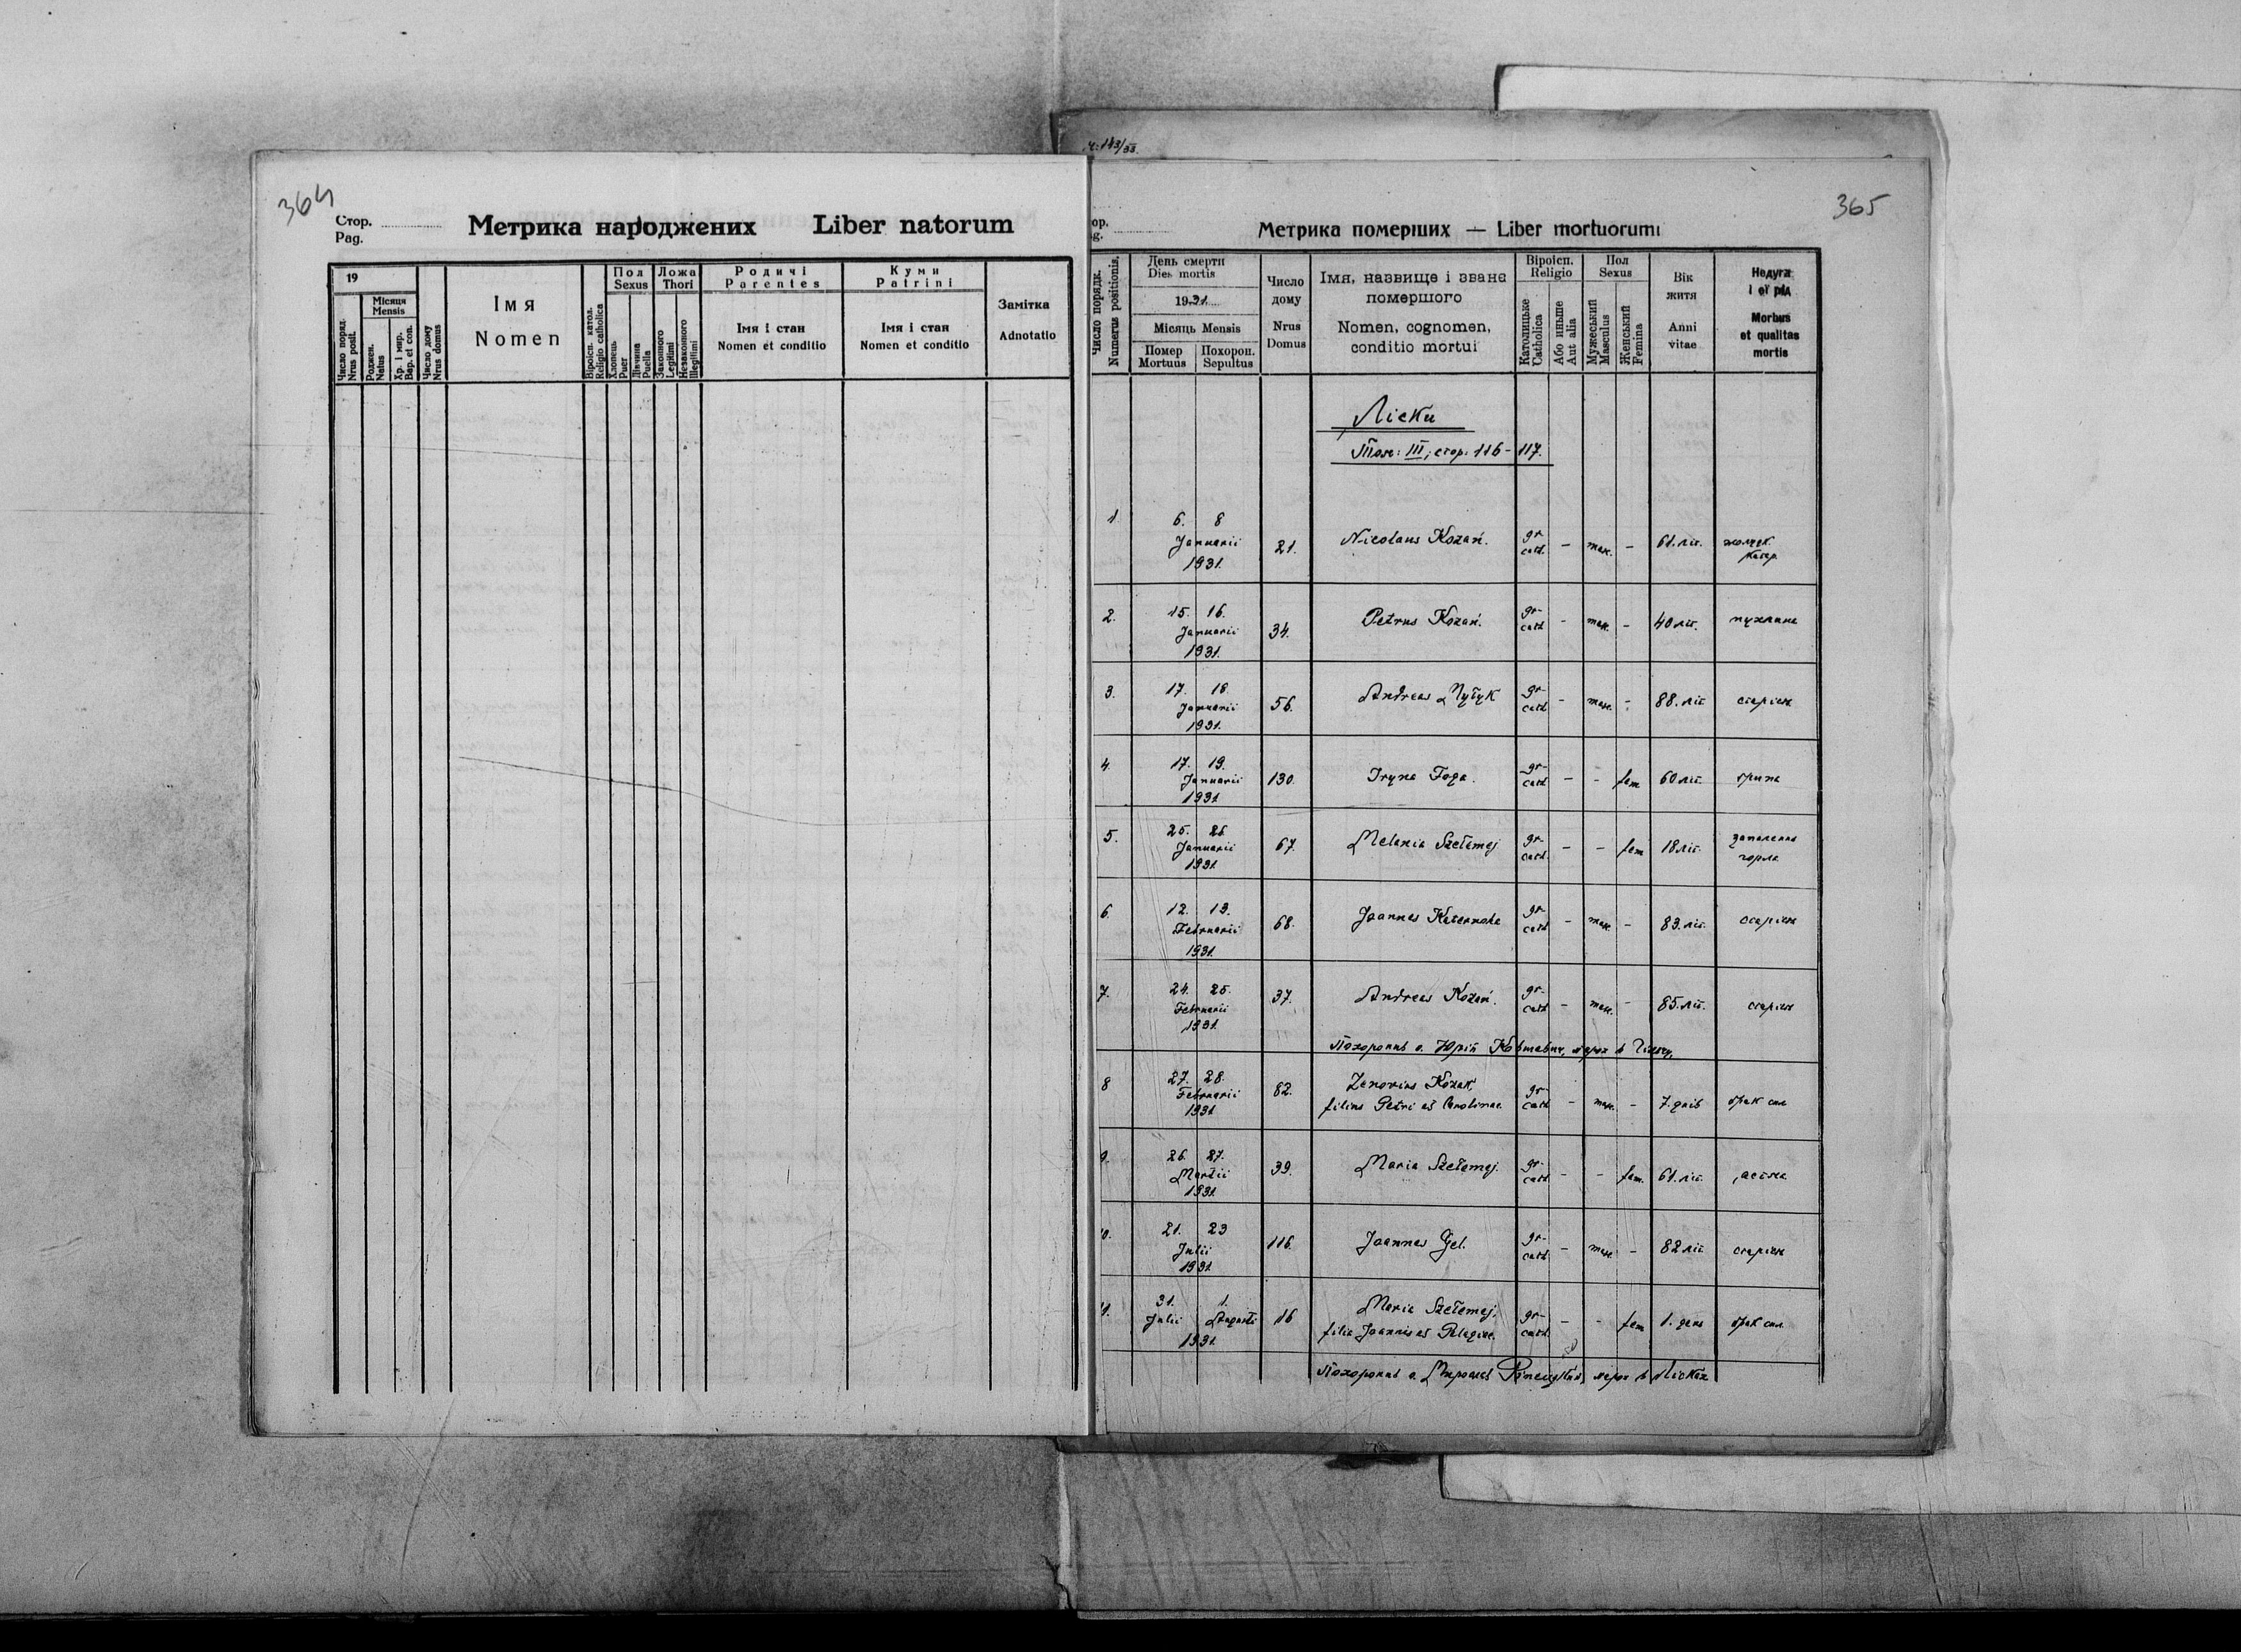 364
Стор.
Pag.
Метрика народжених Liber natorum
19
Місяця
Mensis
Число поряд.
Nrus posit.
Роджен.
Natus
Хр. і мир.
Bap. et con.
Число дому
Nrus domus
Імя
Nomen
Віроісп. катол.
Religio catholica
Пол
Sexus
Хлопець
Puer
Дівчина
Puella
Ложа
Thori
Законного
Legitimi
Незаконного
Illegitimi
Родичі
Parentes
Імя і стан
Nomen et conditio
Куми
Patrini
Імя і стан
Nomen et conditio
Замітка
Adnotatio
ч: 143/33.
365
ор.
g.
Метрика померших — Liber mortuorum
Число порядк.
Numerus positionis.
День смерти
Dies mortis
1931
Місяць Mensis
Помер Похорон.
Mortuus Sepultus
Число
дому
Nrus
Domus
Імя, назвище і званє
помершого
Nomen, cognomen,
conditio mortui
Віроісп.
Religio
Католицьке
Catholica
Або иньше
Aut alia
Пол
Sexus
Мужеський
Masculus
Женський
Femina
Вік
житя
Anni
vitae
Недуга
і єї рід
Morbus
et qualitas
mortis
Ліски
Том: III, стор. 116-117.
1. 6. 8 Januarii 1931. 21. Nicolaus Kozań. gr. cath. - mas. - 61. літ.
2. 15. 16. Januarii 1931. 34. Petrus Kozań. gr- cath - mas. - 40 літ. пухлина
3. 17. 18. Januarii 1931. 56. Andreas gr- cath - masc. - 88. літ старість
4. 17. 19. Januarii 1931 130. Iryna Foga. gr- cath - - fem 60 літ. грипа
5. 25. 26. Januarii 1931 67. Melania Szełemej gr- cath. - - fem 18 літ. запаленнє горла
6. 12. 13. Februarii 1931. 68. Joannes Katernoha gr- cath - mas. - 83. літ. старість
7. 24. 25. Februarii 1931. 37. Andreas Kozań. gr- cath - masc. - 85. літ. старість
Похоронив о. Юрій парох в
8 27. 28. Februarii 1931 82. Zenovius Kozak, filius Petri et Carolinae. gr- cath - mas. - 7. днів брак сил
9. 26. 27. Martii 1931. 39. Maria Szełemej. gr- cath - - fem. 61. літ. астма
10. 21. 23 Julii 1931. 116. Joannes Gel. gr- cath - masc. - 82 літ старість
11. 31. Julii 1. Augusti 1931. 16 Maria Szełemej, filia Joannis et Pelagiae. gr- cath. - - fem 1. день брак сил
Похоронив о. Мирослав парох в Лісках